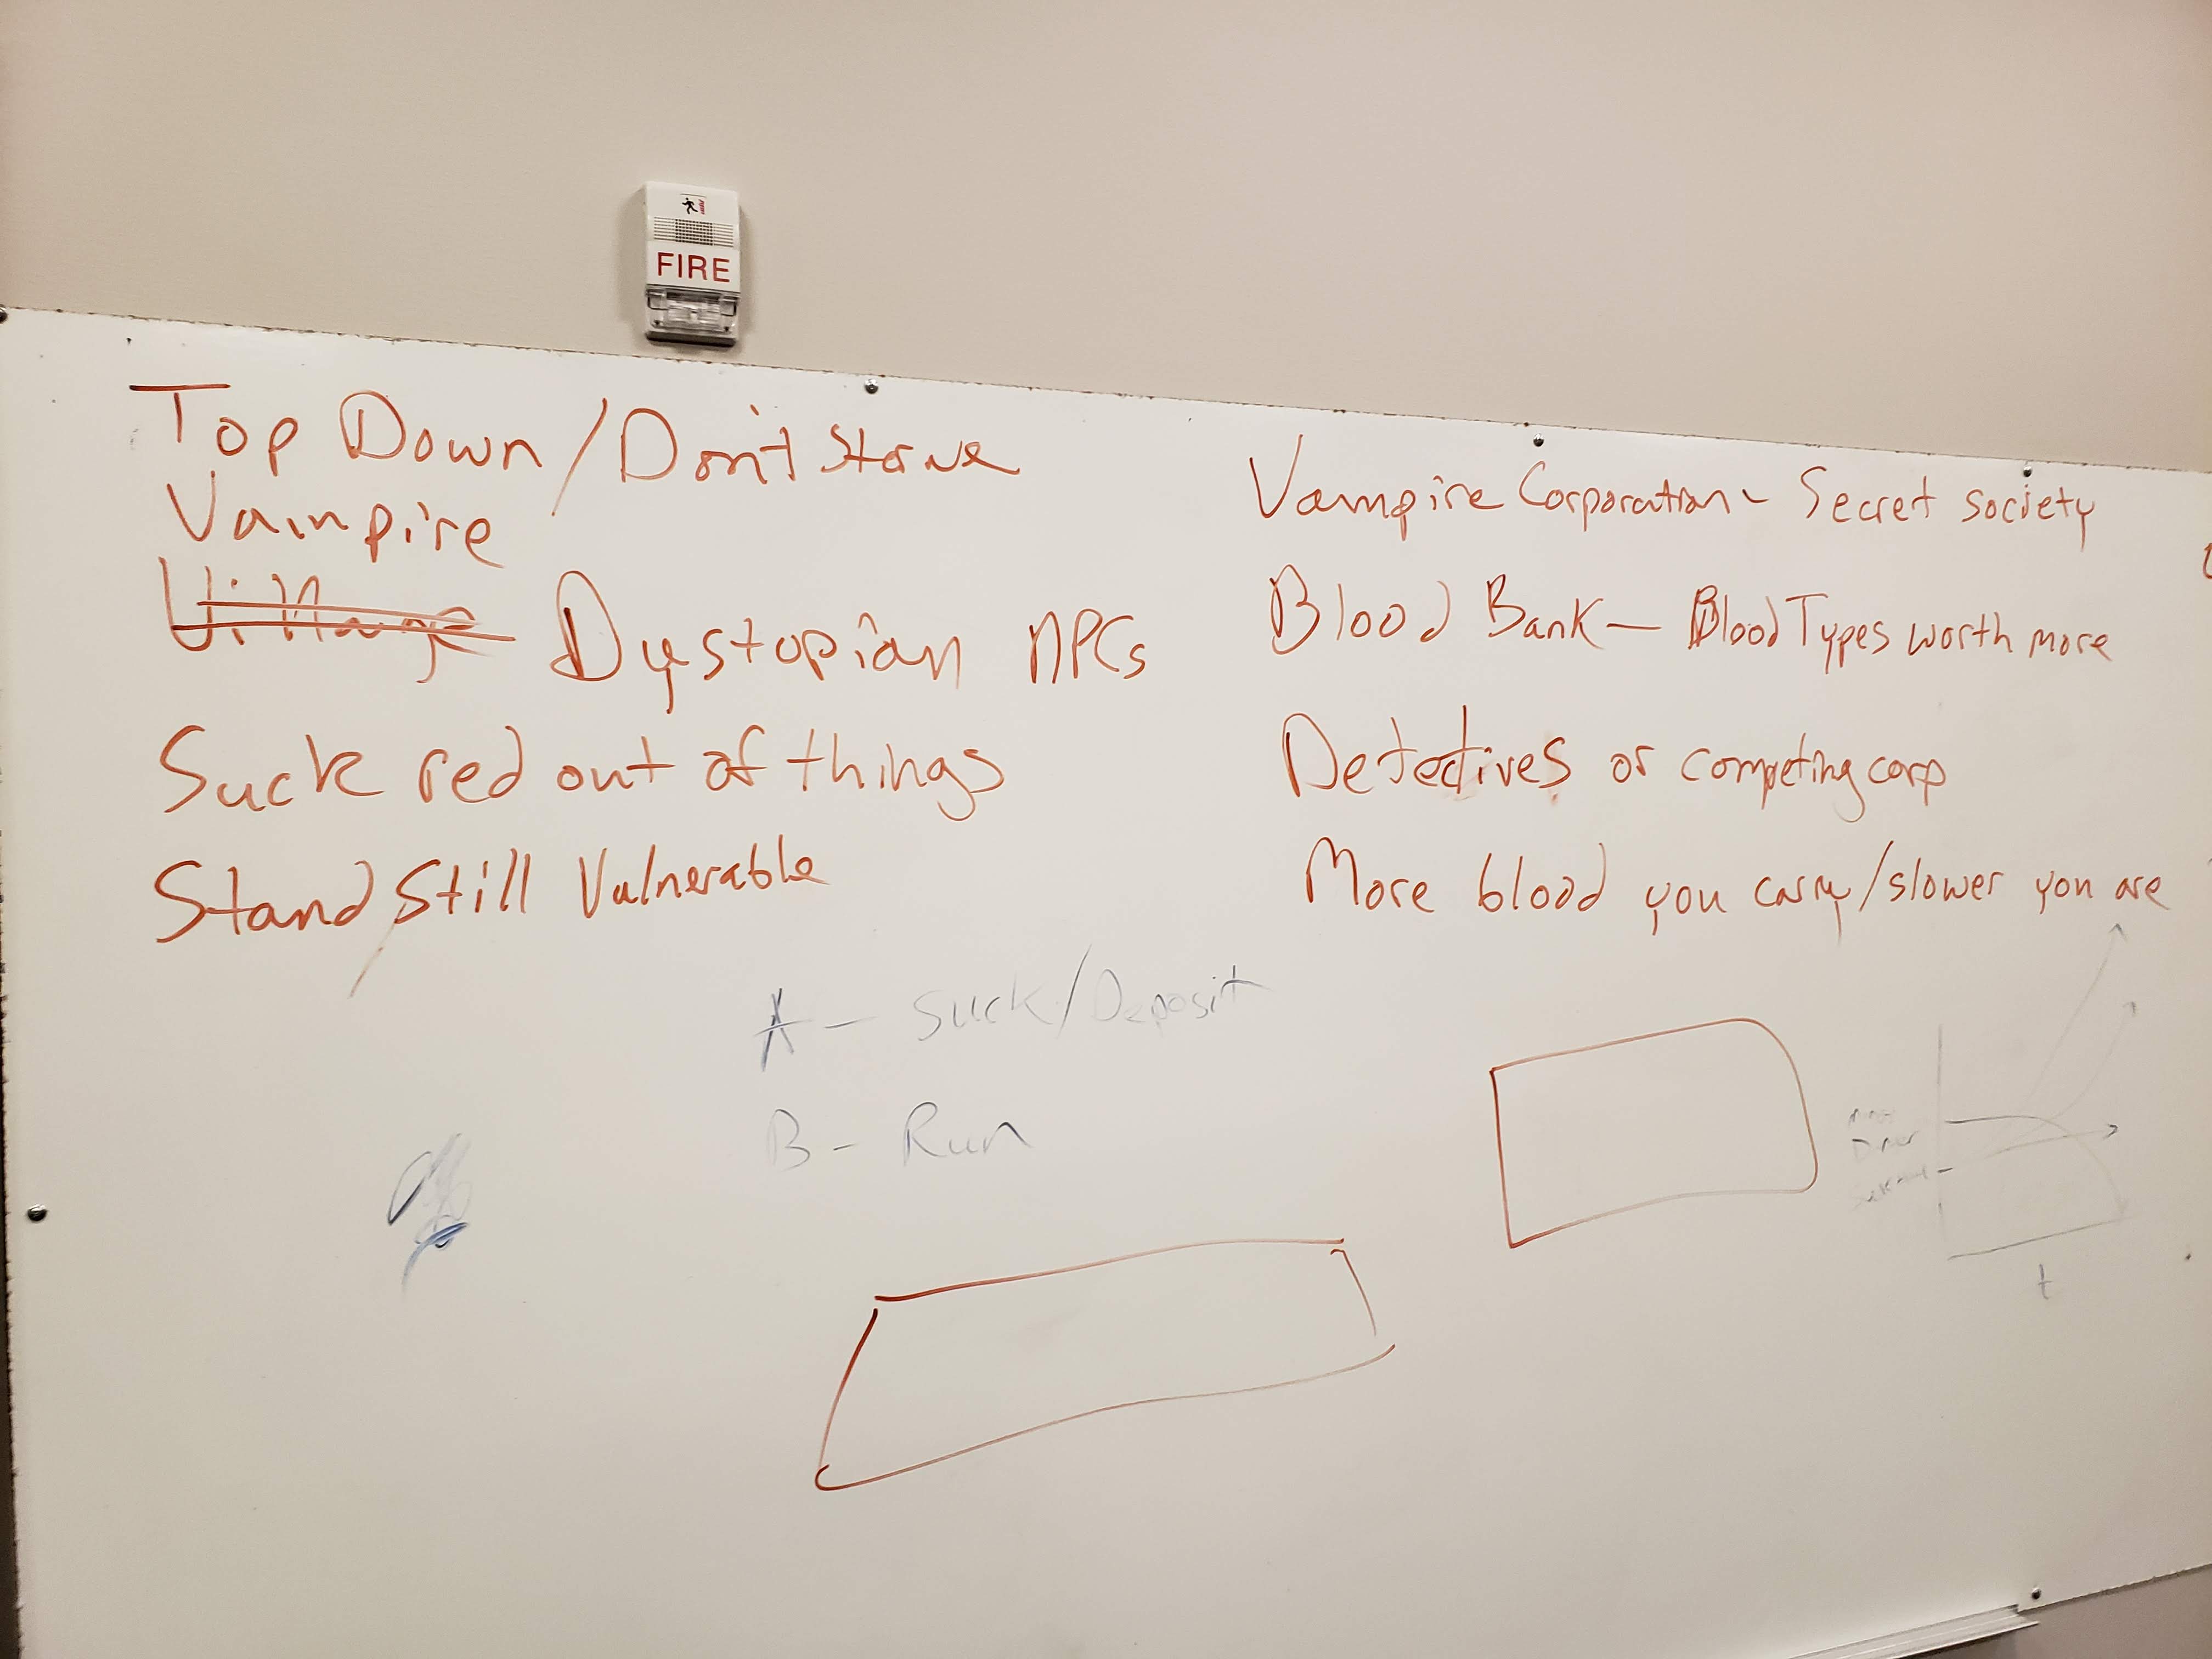 FIRE
Top Down/Don't Starve
Vampire
Village Dystopian NPCs
Suck red out of things
Stand Still Vulnerable
Vampire Corporation - Secret society
Blood Bank - Blood Types worth more
Detectives or competing corp
More blood you carry/slower you are
A - Suck/Deposit
B - Run
t